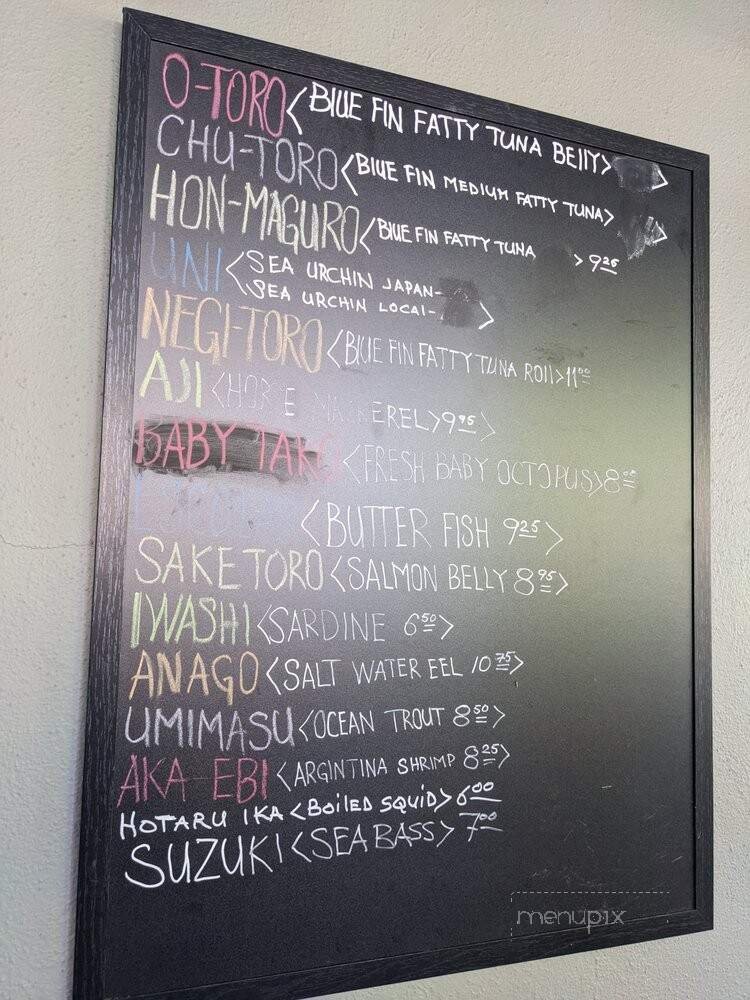 O-TORO <BLUE FIN FATTY TUNA BELLY> >
CHU-TORO <BLUE FIN MEDIUM FATTY TUNA> >
HON-MAGURO <BLUE FIN FATTY TUNA > 9 25
UNI <SEA URCHIN JAPAN-
<SEA URCHIN LOCAL- >
NEGI-TORO <BLUE FIN FATTY TUNA ROLL> 11 00
AJI <HORSE MACKEREL> 9 95 >
BABY TAKO <FRESH BABY OCTOPUS> 8
<BUTTER FISH 9 25 >
SAKE TORO <SALMON BELLY 8 95 >
IWASHI <SARDINE 6 50 >
ANAGO <SALT WATER EEL 10 75 >
UMIMASU <OCEAN TROUT 8 50 >
AKA EBI <ARGINTINA SHRIMP 8 25 >
HOTARU IKA <BOILED SQUID> 6 00
SUZUKI <SEA BASS> 7 00
menupix